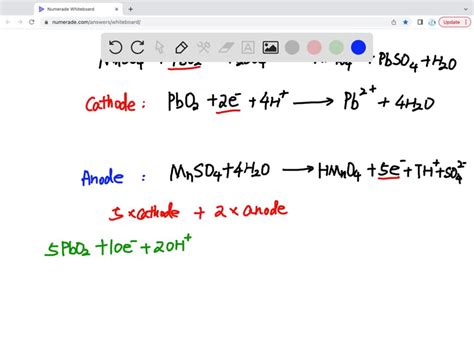 Numerade Whiteboard
numerade.com/answers/whiteboard/
PbSO4 + H2O
Cathode : PbO2 + 2e- + 4H+ → Pb2+ + 4H2O
Anode : MnSO4 + 4H2O → HMnO4 + 5e- + 7H+ + SO42-
5 x cathode + 2 x anode
5PbO2 + 10e- + 20H+